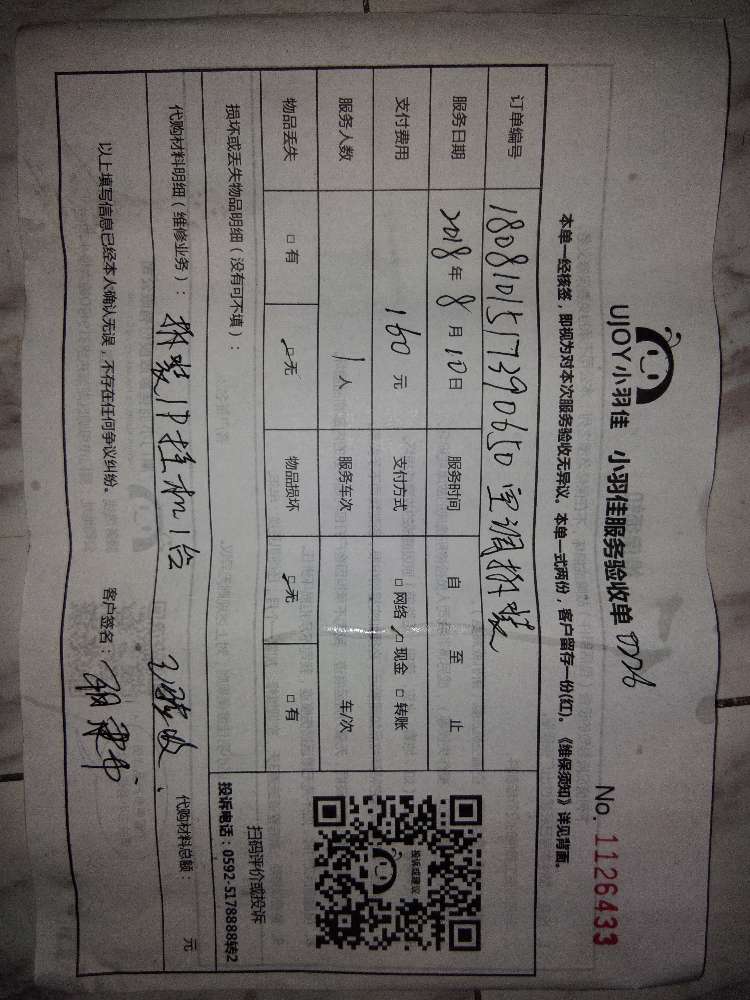 UJOY小羽佳 小羽佳服务验收单 0026
No. 1126433
本单一经核签，即视为对本次服务验收无异议。本单一式两份，客户留存一份(红)。《维保须知》详见背面。
订单编号 1808101517390650 空调拆装
服务日期 2018年8月10日 服务时间 自 至 止
支付费用 160元 支付方式 □网络 ☑现金 □转账
服务人数 1人 服务车次 车/次
物品丢失 □有 ☑无 物品损坏 ☑无 □有
投诉或建议
扫码评价或投诉
投诉电话：0592-5178888转2
损坏或丢失物品明细（没有可不填）：
代购材料明细（维修业务）：拆装1P挂机1台 已验收. 代购材料总额： 元
以上填写信息已经本人确认无误，不存在任何争议纠纷。 客户签名：